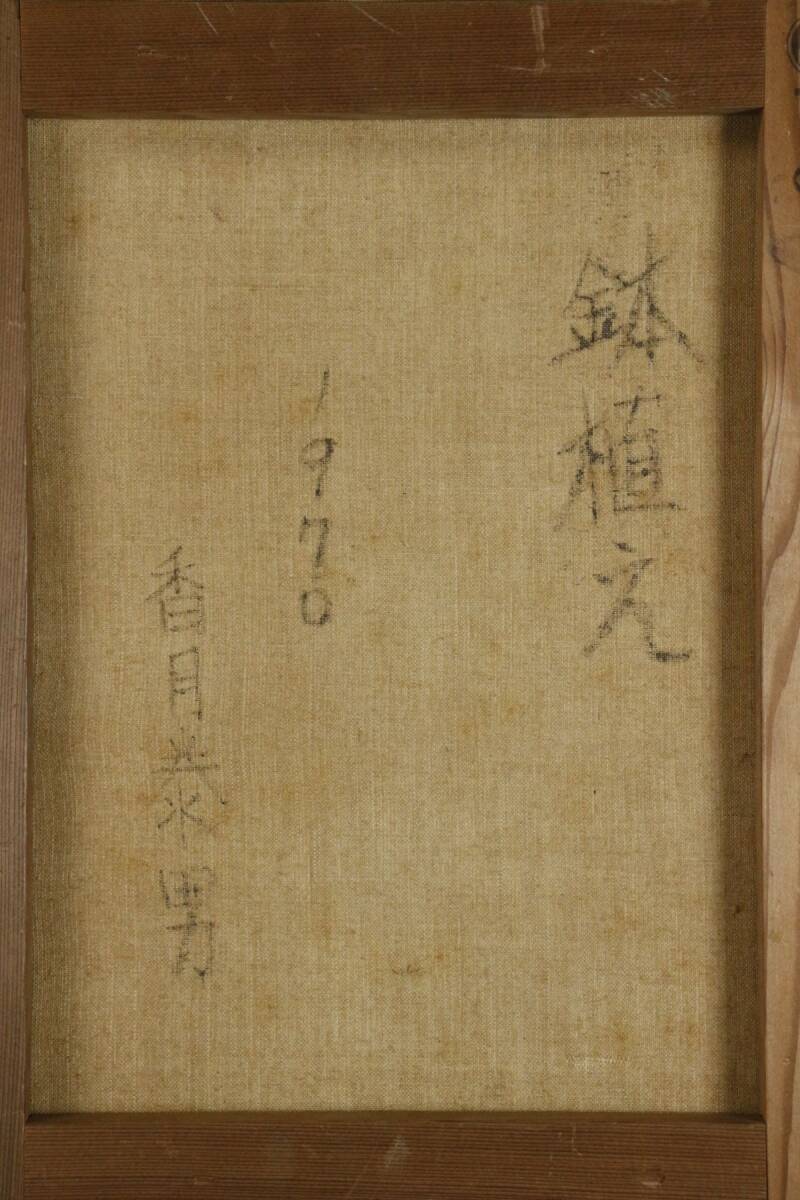 鉢植え
1970
香月泰男